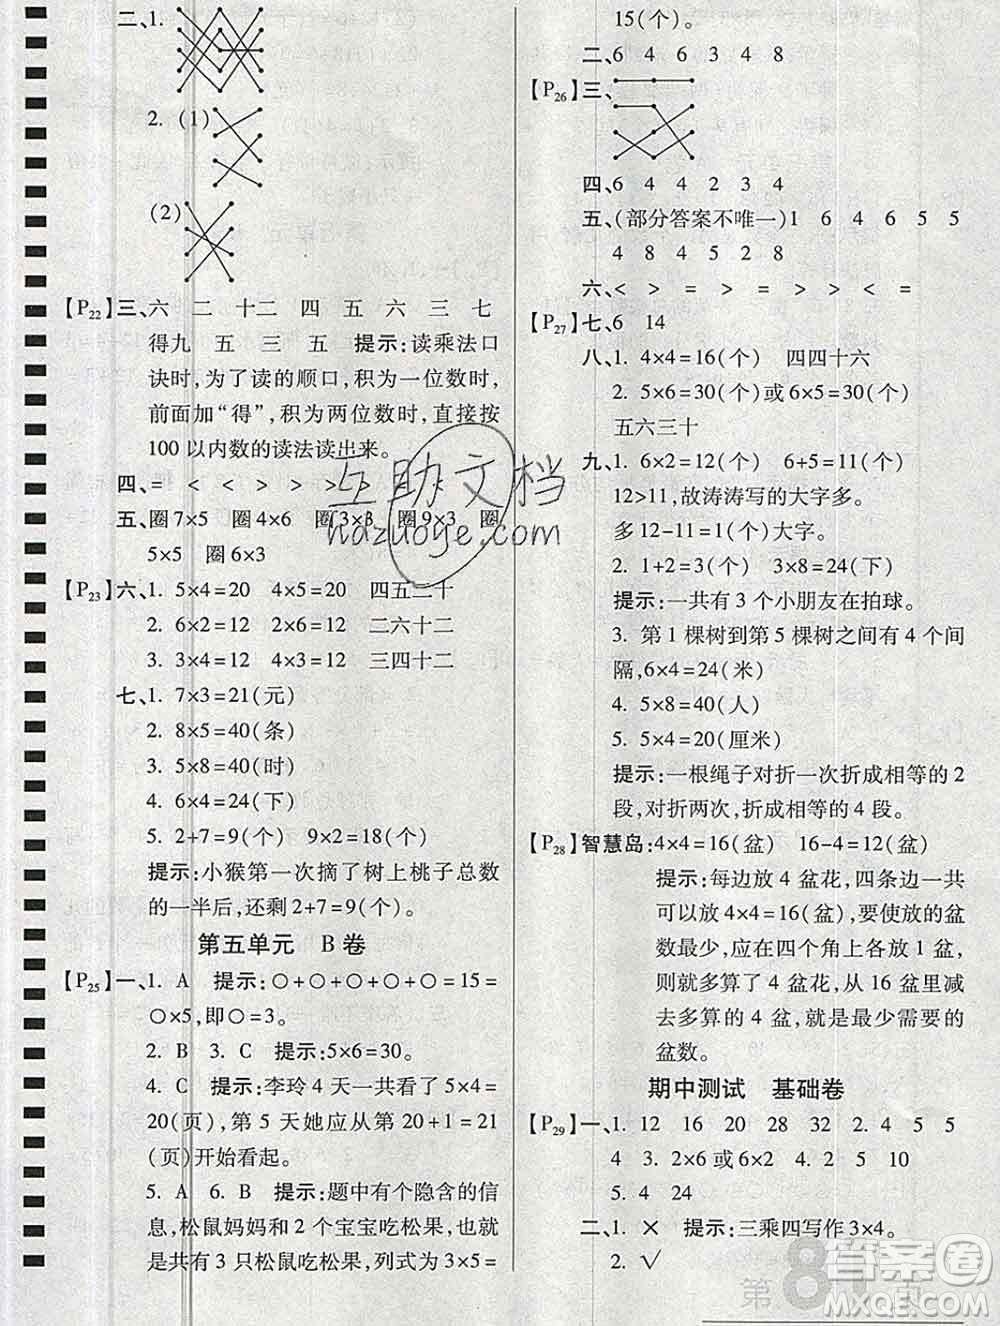 二、1.
2. (1)
(2)
【P22】三、六 二 十二 四 五 六 三 七
得九 五 三 五 提示:读乘法口
诀时,为了读的顺口,积为一位数时,
前面加“得”,积为两位数时,直接按
100以内数的读法读出来。
四、= < < > > > < <
五、圈7×5 圈4×6 圈3×3 圈9×3 圈
5×5 圈6×3
【P23】六、1. 5×4=20 4×5=20 四五二十
2. 6×2=12 2×6=12 二六十二
3. 3×4=12 4×3=12 三四十二
七、1. 7×3=21(元)
2. 8×5=40(条)
3. 5×8=40(时)
4. 6×4=24(下)
5. 2+7=9(个) 9×2=18(个)
提示:小猴第一次摘了树上桃子总数
的一半后,还剩2+7=9(个)。
第五单元 B卷
【P25】一、1. A 提示:○+○+○+○+○=15=
○×5,即○=3。
2. B 3. C 提示:5×6=30。
4. C 提示:李玲4天一共看了5×4=
20(页),第5天她应从第20+1=21
(页)开始看起。
5. A 6. B 提示:题中有个隐含的信
息,松鼠妈妈和2个宝宝吃松果,也就
是共有3只松鼠吃松果,列式为3×5=
15(个)。
二、6 4 6 3 4 8
【P26】三、
四、6 4 4 2 3 4
五、(部分答案不唯一)1 6 4 6 5 5
4 8 4 5 2 8
六、< > = > > < =
【P27】七、6 14
八、1. 4×4=16(个) 四四十六
2. 5×6=30(个)或6×5=30(个)
五六三十
九、1. 6×2=12(个) 6+5=11(个)
12>11,故涛涛写的大字多。
多12-11=1(个)大字。
2. 1+2=3(个) 3×8=24(个)
提示:一共有3个小朋友在拍球。
3. 第1棵树到第5棵树之间有4个间
隔,6×4=24(米)
4. 5×8=40(人)
5. 5×4=20(厘米)
提示:一根绳子对折一次折成相等的2
段,对折两次,折成相等的4段。
【P28】智慧岛:4×4=16(盆) 16-4=12(盆)
提示:每边放4盆花,四条边一共
可以放4×4=16(盆),要使放的盆
数最少,应在四个角上各放1盆,
则多算了4盆花,从16盆里减
去多算的4盆,就是最少需要的
盆数。
期中测试 基础卷
【P29】一、1. 12 16 20 28 32 2. 4 5 5
4 3. 2×6或6×2 4. 2 5 10
5. 4 24
二、1. × 提示:三乘四写作3×4。
2. √
第8页
互助文档
hazuoye.com
答案圈
MXQE.COM